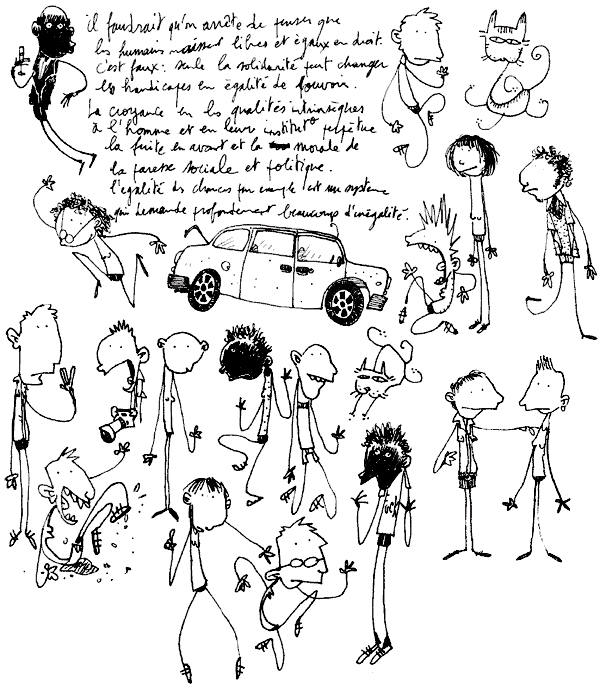 il faudrait qu'on arrête de penser que
les humains naissent libres et égaux en droit.
c'est faux : seule la solidarité peut changer
les handicapes en égalité de pouvoir.
La croyance en les qualités intrinsèques
à l'homme et en leurs institut° perpétue
la fuite en avant et la morale de
la paresse sociale et politique.
l'égalité des chances par exemple est un système
qui demande profondément beaucoup d'inégalité.